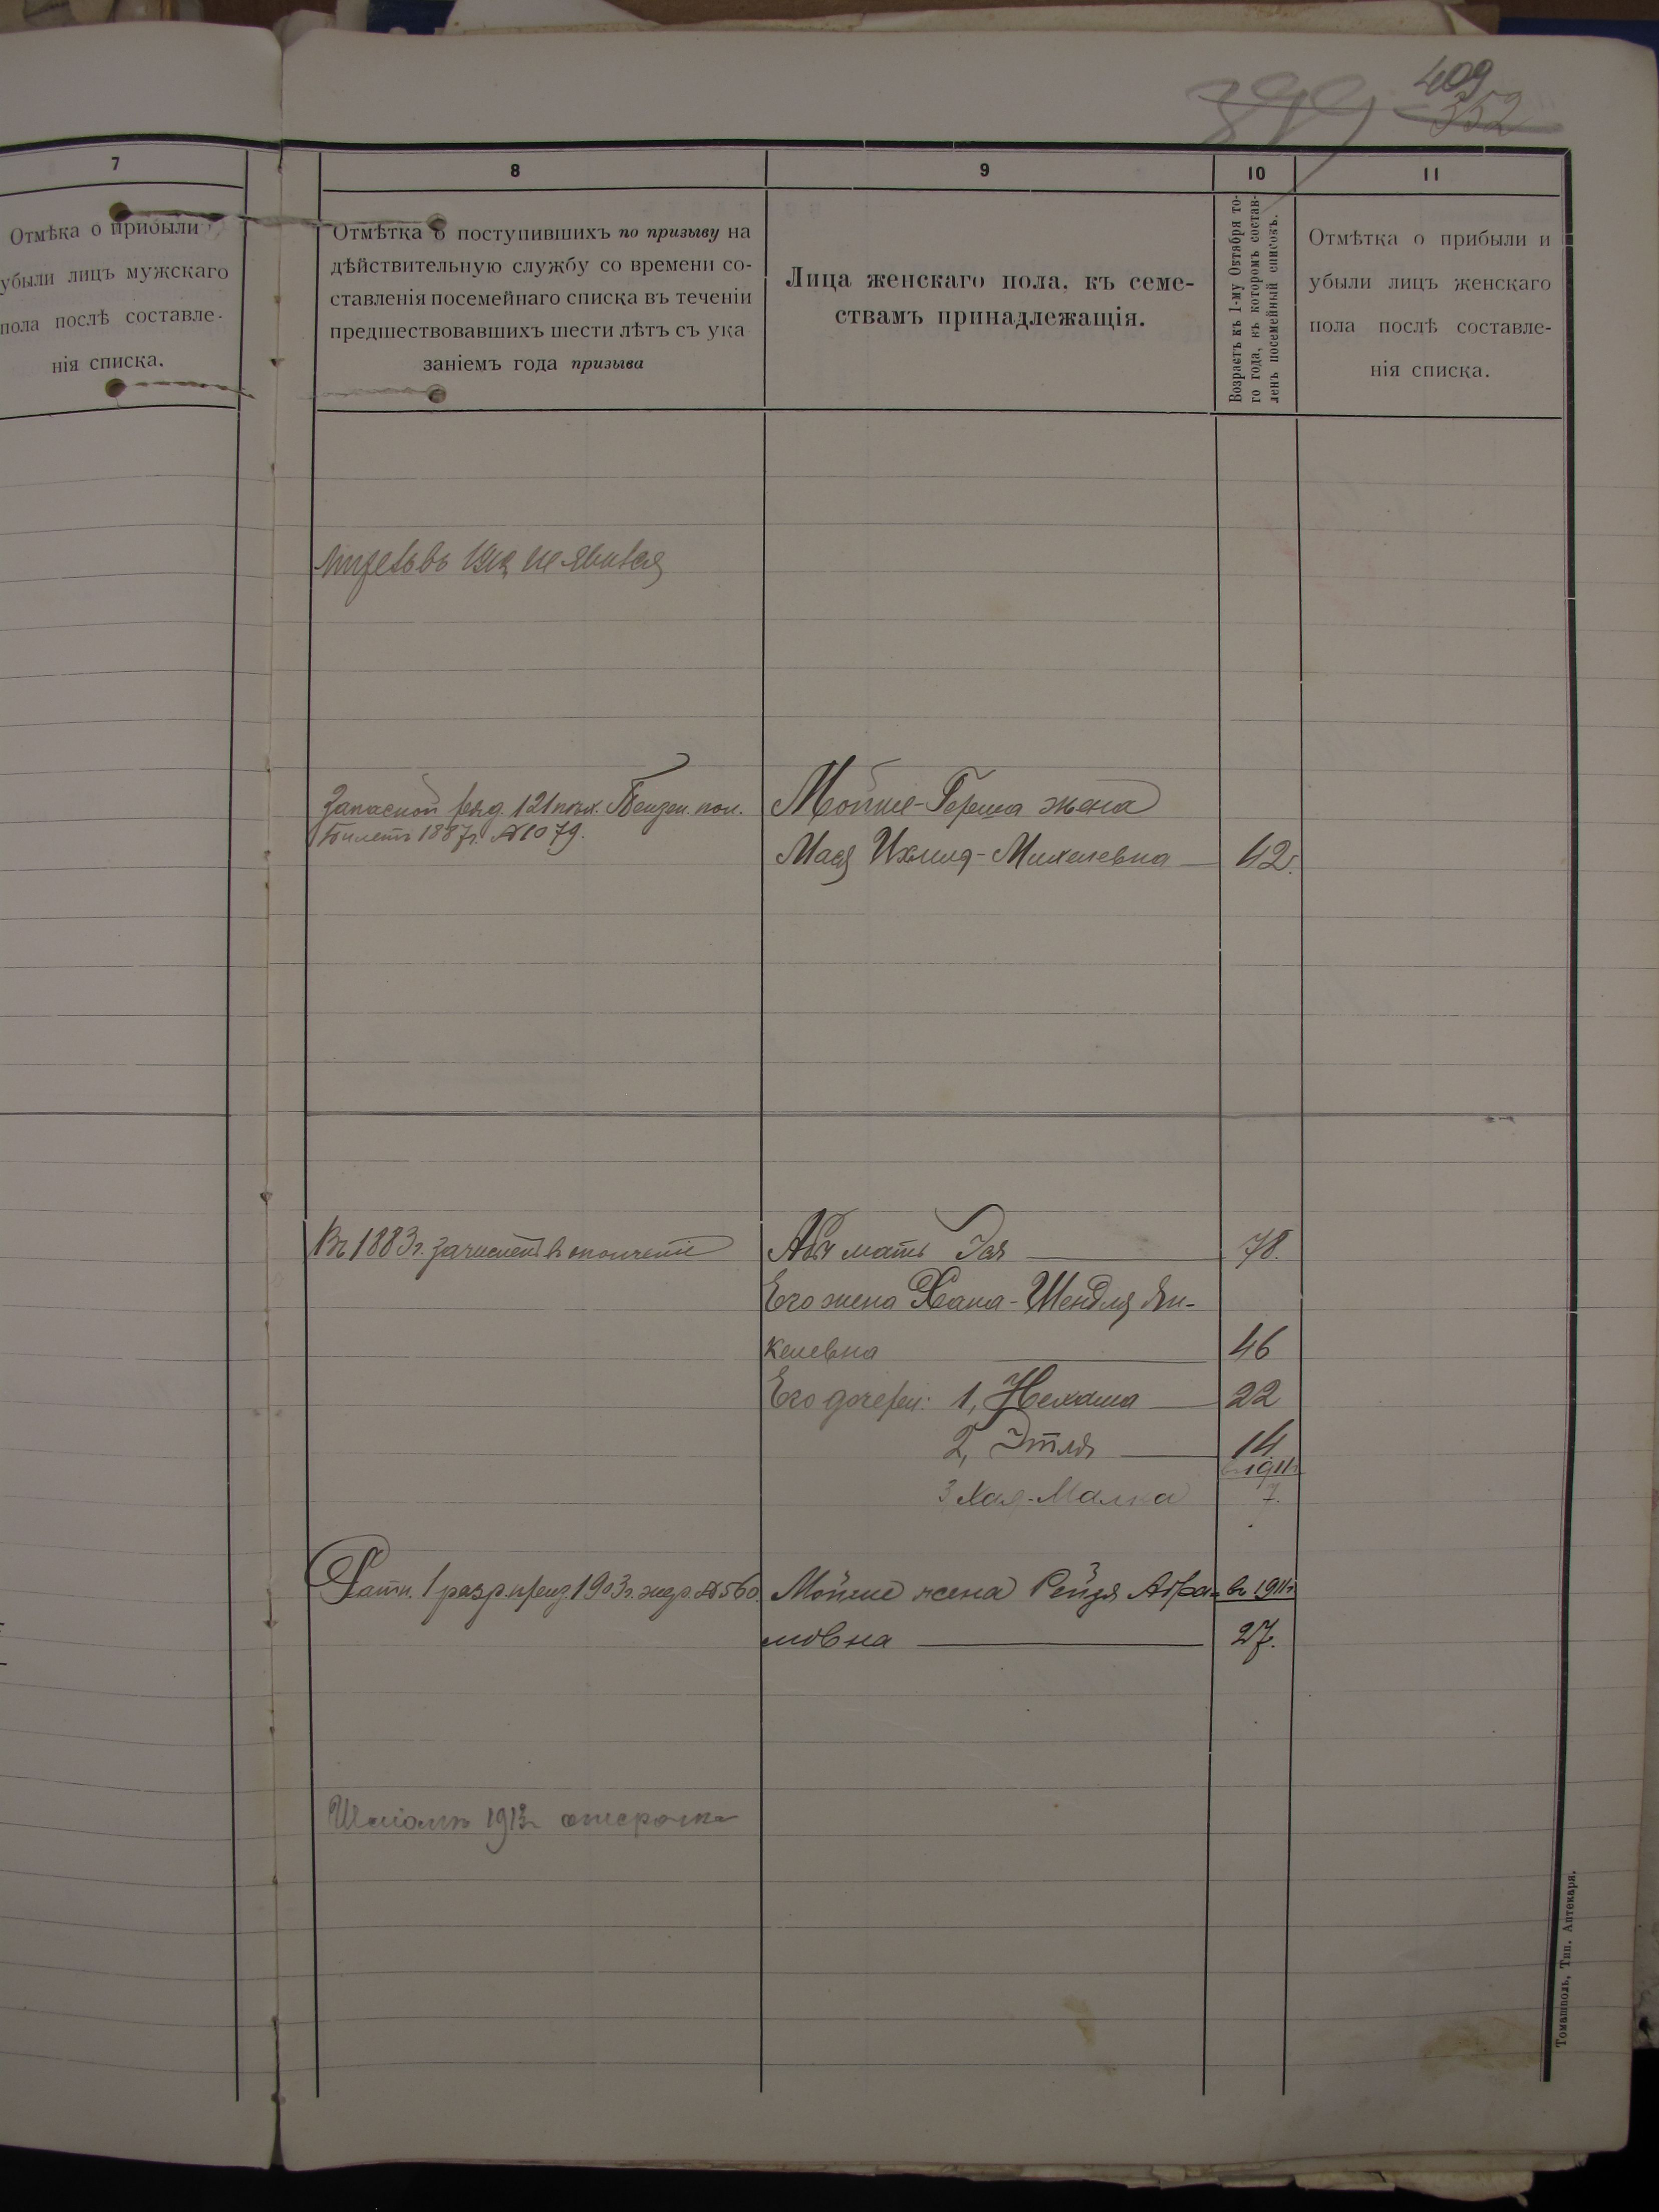 409
399 352
7
Отмѣка о прибыли
убыли лицъ мужскаго
пола послѣ составле-
нія списка.
8
Отмѣтка о поступившихъ по призыву на
дѣйствительную службу со времени со-
ставленія посемейнаго списка въ теченіи
предшествовавшихъ шести лѣтъ съ ука
заніемъ года призыва
9
Лица женскаго пола, къ семе-
ствамъ принадлежащія.
10
Возрастъ къ 1-му Октября то-
го года, въ которомъ состав-
ленъ посемейный списокъ.
11
Отмѣтка о прибыли и
убыли лицъ женскаго
пола послѣ составле-
нія списка.
не явился
Запасной ряд. 121 пѣх. Пензен. пол.
Билетъ 1887 г. №1079.
Мойше-Герша жена
Мася Ихиля-Михелевна 42.
Въ 1883 г. зачисленъ в ополченіе
Абы мать Зая 78.
Его жена Хана-Шендля Ян-
келевна 46
Его дочери: 1, Нехама 22
2, Этля 14
въ 1911 г.
3 Хая-Малка 7.
Ратн. 1 разр. приз. 1903 г. жер. №560.
Мойше жена Рейзя Абра- въ 1911 г.
мовна 27.
1913 г. отсрочка
Томашполь, Тип. Аптекаря.